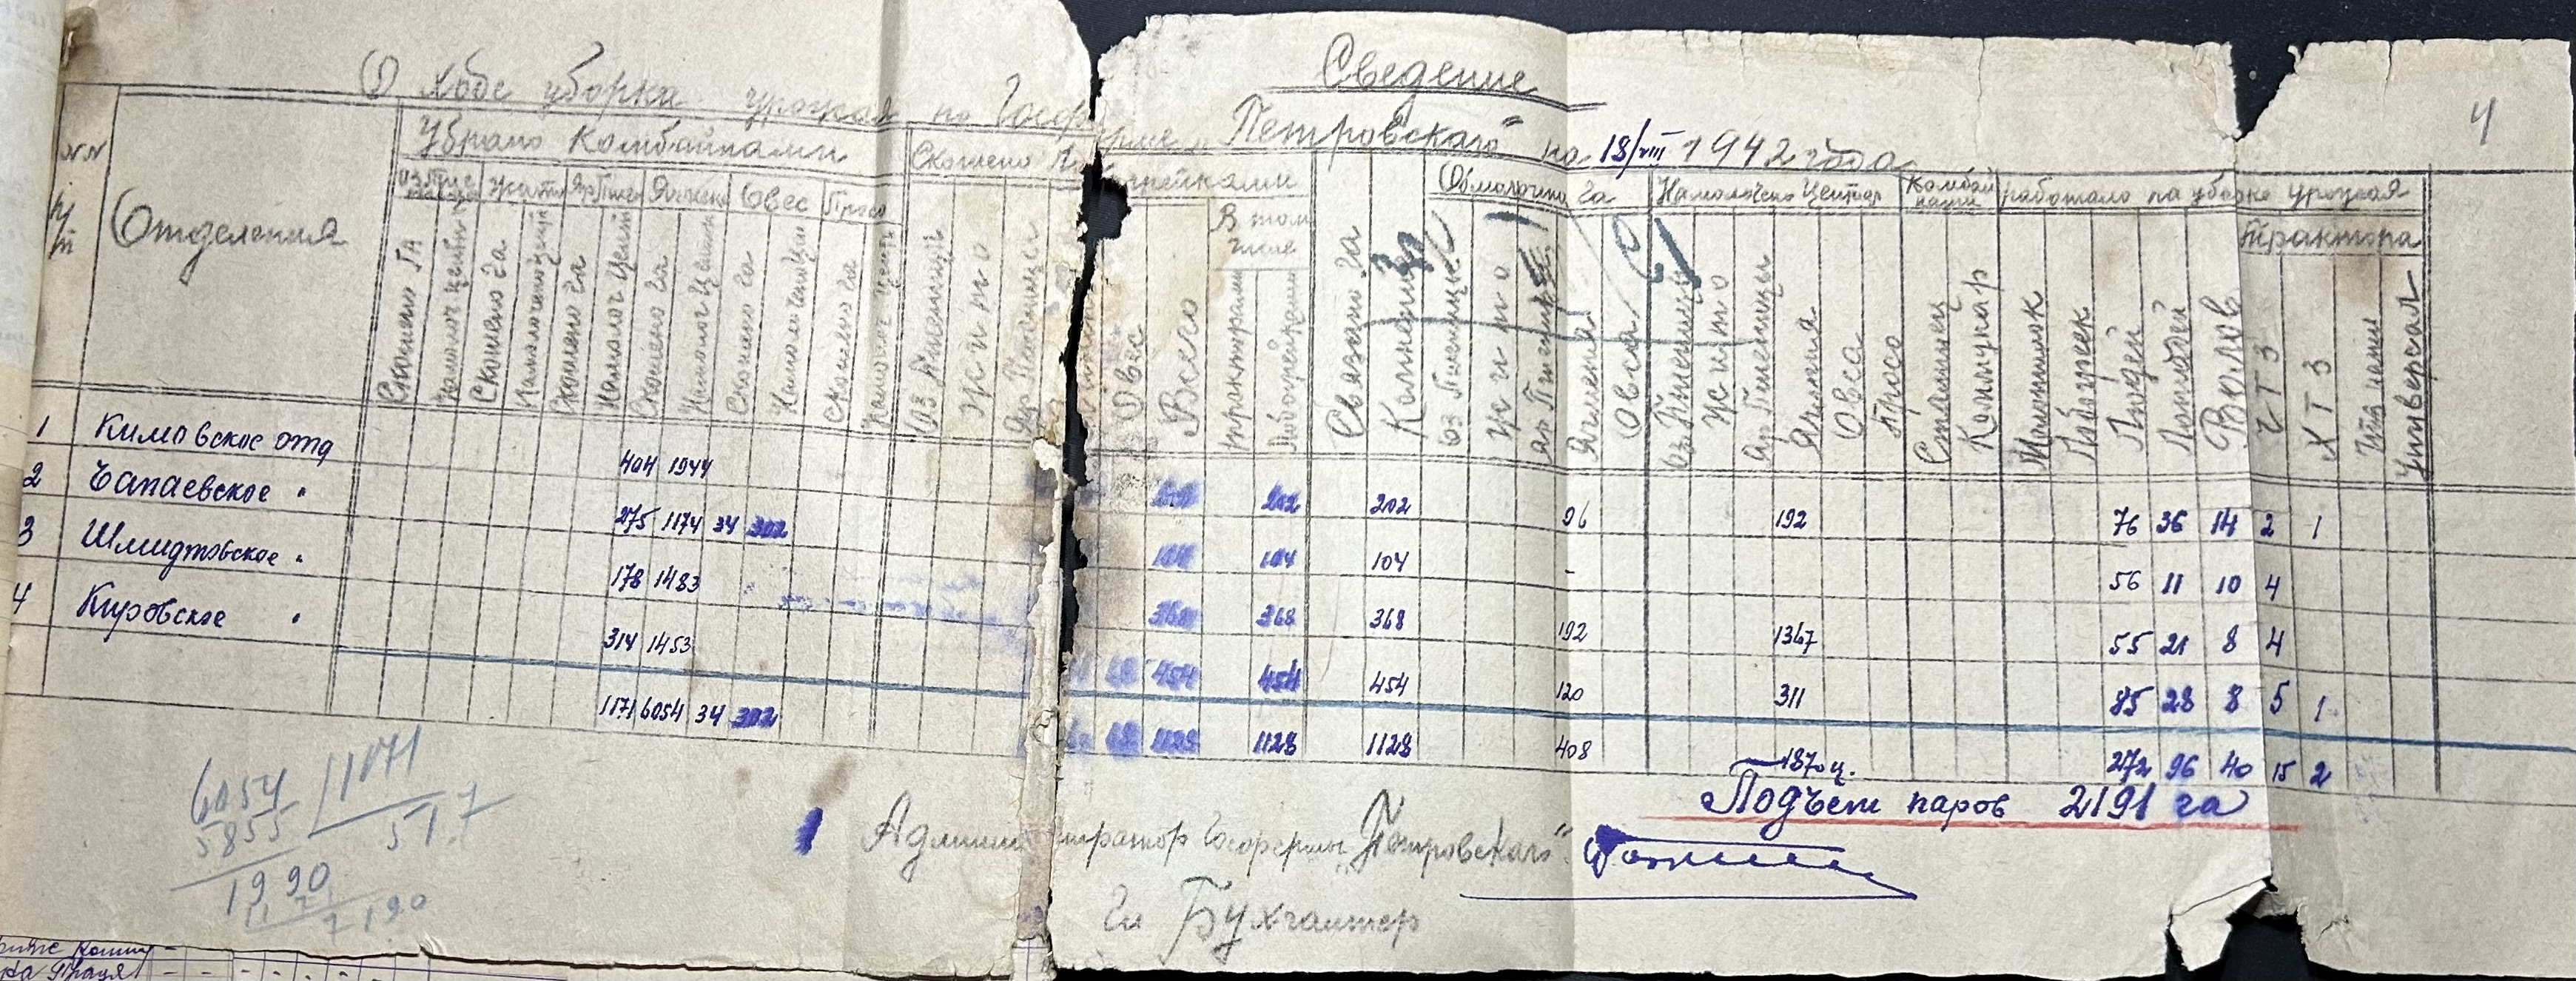 Сведение
О ходе уборки урожая по Госферме „Петровского" на 18/VIII 1942 года.
4
NN п/п
Отделения
Убрано Комбайнами
Скошено
Обмолочено га
Намолочено Центнер
Комбайнами
работало на уборке урожая
Оз Пшеница Жито Яр Пшен Ячменя Овес Просо
В том числе
трактора
Скошено га Намолоч центн Скошено га Намолочен цент Скошено га Намолоч Центн Скошено га Намолоч Центн Скошено га Намолоч Центн Скошено га Намолоч центн
Оз Пшеницы Жито Яр Пшеницы Овса Всего тракторами Лобогрейками Связано га Копнено Оз Пшеницы Жито Яр Пшеницы Ячменя Овса
Оз Пшеницы Жито Яр Пшеницы Ячменя Овса Просо Сталинец Комунар Лобогреек Людей Лошадей Волов ЧТЗ ХТЗ Универсал
1 Кимовское отд 404 1944 202 202 96 192 76 36 14 2 1
2 Чапаевское " 275 1174 34 302 104 104 104 - 56 11 10 4
3 Шмидтовское " 178 1483 368 368 368 192 1367 55 21 8 4
4 Кировское " 314 1453 454 454 454 120 311 85 28 8 5 1
1171 6054 34 302 1128 1128 1128 408 1870 ц. 272 96 40 15 2
Подъем паров 2191 га
6054 1171
5855 51.7
1990
1171
2190
Администратор Госфермы „Петровского"
Гл Бухгалтер